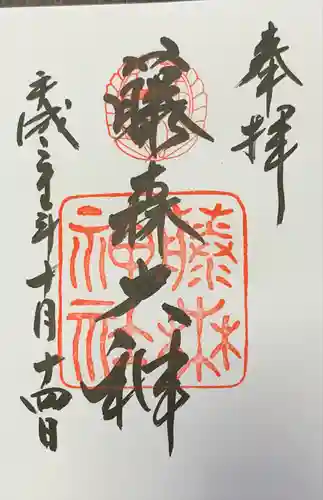 奉拝
藤森大神
藤森
神社
平成三十年十月十四日